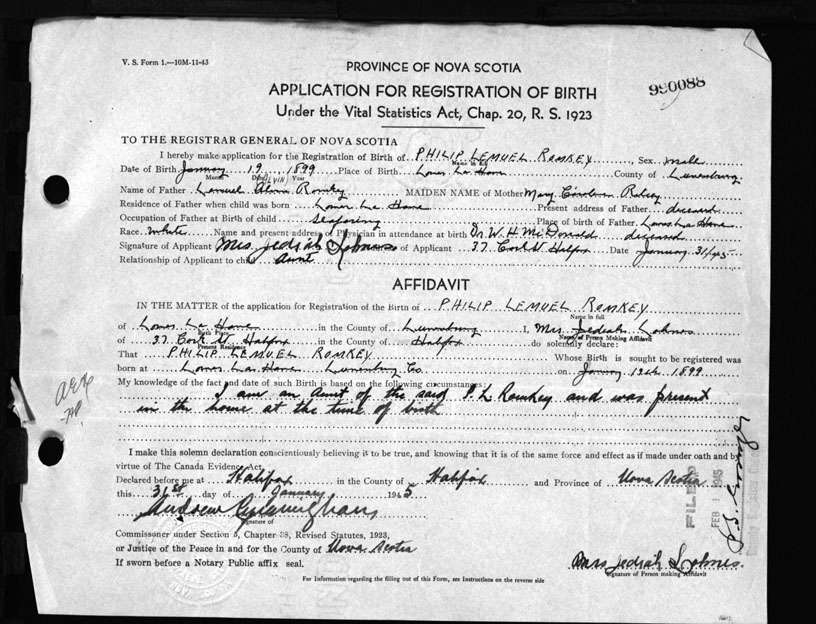 V. S. Form 1.—10M-11-43
PROVINCE OF NOVA SCOTIA
990088
APPLICATION FOR REGISTRATION OF BIRTH
Under the Vital Statistics Act, Chap. 20, R. S. 1923
TO THE REGISTRAR GENERAL OF NOVA SCOTIA
I hereby make application for the Registration of Birth of PHILIP LEMUEL ROMKEY, Sex male
Name in full
Date of Birth January 19 1899 Place of Birth Lower La Have County of Lunenburg
Month Date Year
Name of Father Lemuel Romkey MAIDEN NAME of Mother Mary
Residence of Father when child was born Lower La Have Present address of Father deceased
Occupation of Father at Birth of child seafaring Place of birth of Father Lower La Have
Race white Name and present address of Physician in attendance at birth Dr. W. H. McDonald deceased
Signature of Applicant Mrs. Jediah Lohnes of Applicant 37 Cork St Halifax Date January 31/45
Relationship of Applicant to child aunt
AFFIDAVIT
IN THE MATTER of the application for Registration of the Birth of PHILIP LEMUEL ROMKEY
Name in full
of Lower La Have in the County of Lunenburg I, Mrs. Jediah Lohnes
Birth Place Name of Person Making Affidavit
of 37 Cork St Halifax in the County of Halifax do solemnly declare:
Present Residence
That PHILIP LEMUEL ROMKEY Whose Birth is sought to be registered was
born at Lower La Have Lunenburg Co. on January 19th 1899
My knowledge of the fact and date of such Birth is based on the following circumstances:
I am an Aunt of the said P. L Romkey and was present
in the home at the time of birth
I make this solemn declaration conscientiously believing it to be true, and knowing that it is of the same force and effect as if made under oath and by
virtue of The Canada Evidence Act.
Declared before me at Halifax in the County of Halifax and Province of Nova Scotia
this 31st day of January 1945
Andrew Cunningham
Signature of
Commissioner under Section 5, Chapter 38, Revised Statutes, 1923,
or Justice of the Peace in and for the County of Nova Scotia
If sworn before a Notary Public affix seal.
Mrs Jediah Lohnes
Signature of Person making Affidavit
For Information regarding the filling out of this Form, see Instructions on the reverse side
FILED
FEB 1 1945